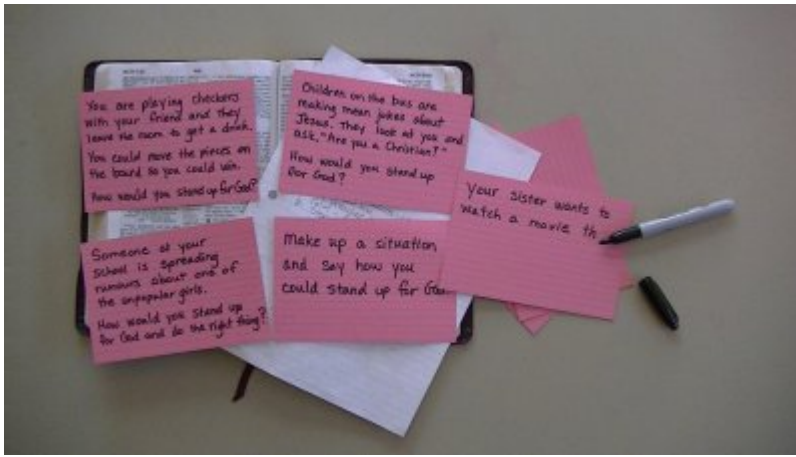 You are playing checkers
with your friend and they
leave the room to get a drink.
You could move the pieces on
the board so you could win.
How would you stand up for God?
Children on the bus are
making mean jokes about
Jesus. They look at you and
ask, "Are you a Christian?"
How would you stand up
for God?
Your sister wants to
watch a movie th
Someone at your
school is spreading
rumours about one of
the unpopular girls.
How would you stand up
for God and do the right thing?
Make up a situation
and say how you
could stand up for God.